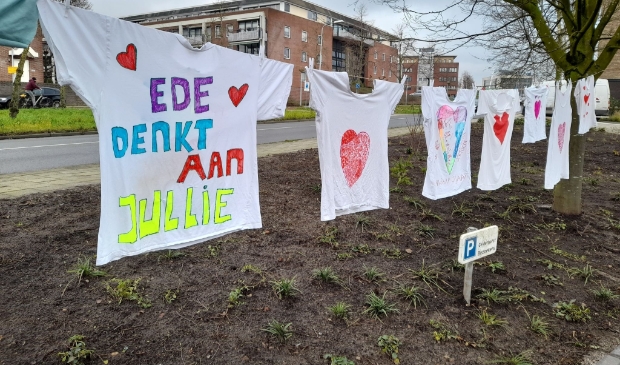 EDE
DENKT
AAN
JULLIE
P